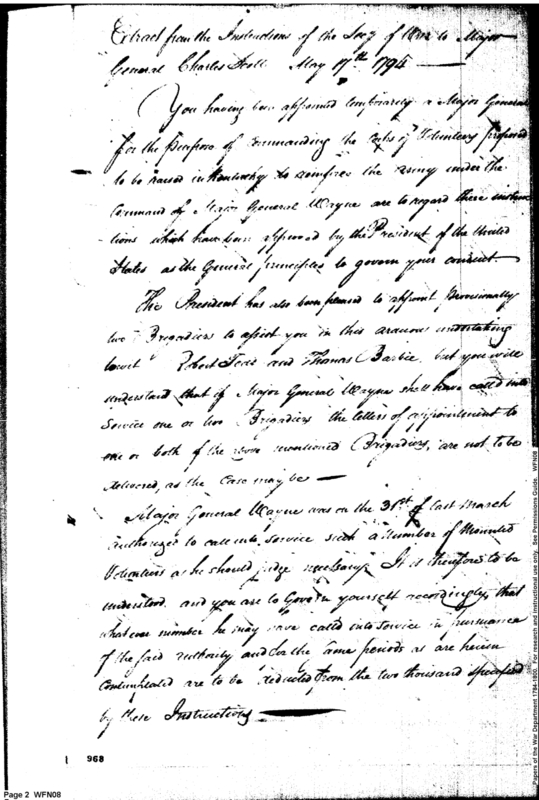 Extract from the Instructions of the Secy of War to Major
General Charles Scott May 17th 1794
You having been appointed temporarily a Major General
for the Purpose of commanding the Corps of Volunteers proposed
to be raised in Kentucky to reinforce the Army under the
Command of Major General Wayne are to regard these instruc
tions which have been approved by the President of the United
States as the General principles to govern your conduct.
The President has also been pleased to appoint Provisionally
two Brigadiers to assist you in this arduous undertaking
towit Robert Todd and Thomas Barbie, but you will
understand that if Major General Wayne shall have called into
Service one or two Brigadiers the letters of appointment to
one or both of the above mentioned Brigadiers, are not to be
delivered, as the Case may be
Major General Wayne was on the 31st of last March
authorized to call into Service such a number of Mounted
Volunteers as he should judge necessary. It is therefore to be
understood and you are to Govern yourself accordingly, that
whatever number he may have called into Service in pursuance
of the said authority and for the same periods as are herein
Contemplated are to be deducted, from the two thousand specified
by these Instructions
968
Page 2 WFN08
Papers of the War Department 1784-1800. For research and instructional use only. See Permissions Guide. WFN08